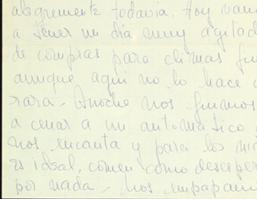 alegremente todavía. Hoy vam
a tener un día muy agitado
de compras para climas
aunque aquí no lo hace
rara. Anoche nos fuimos
a cenar a un automático
nos encanta y para los
es ideal, comen como
por nada. Nos empapam